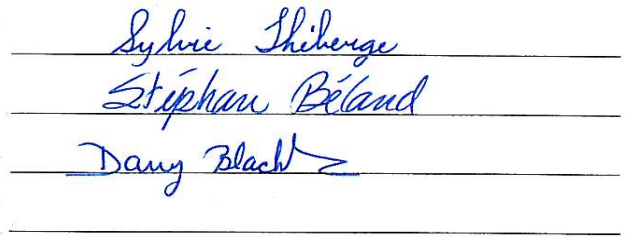 Sylvie Thiberge
Stéphan Béland
Dany